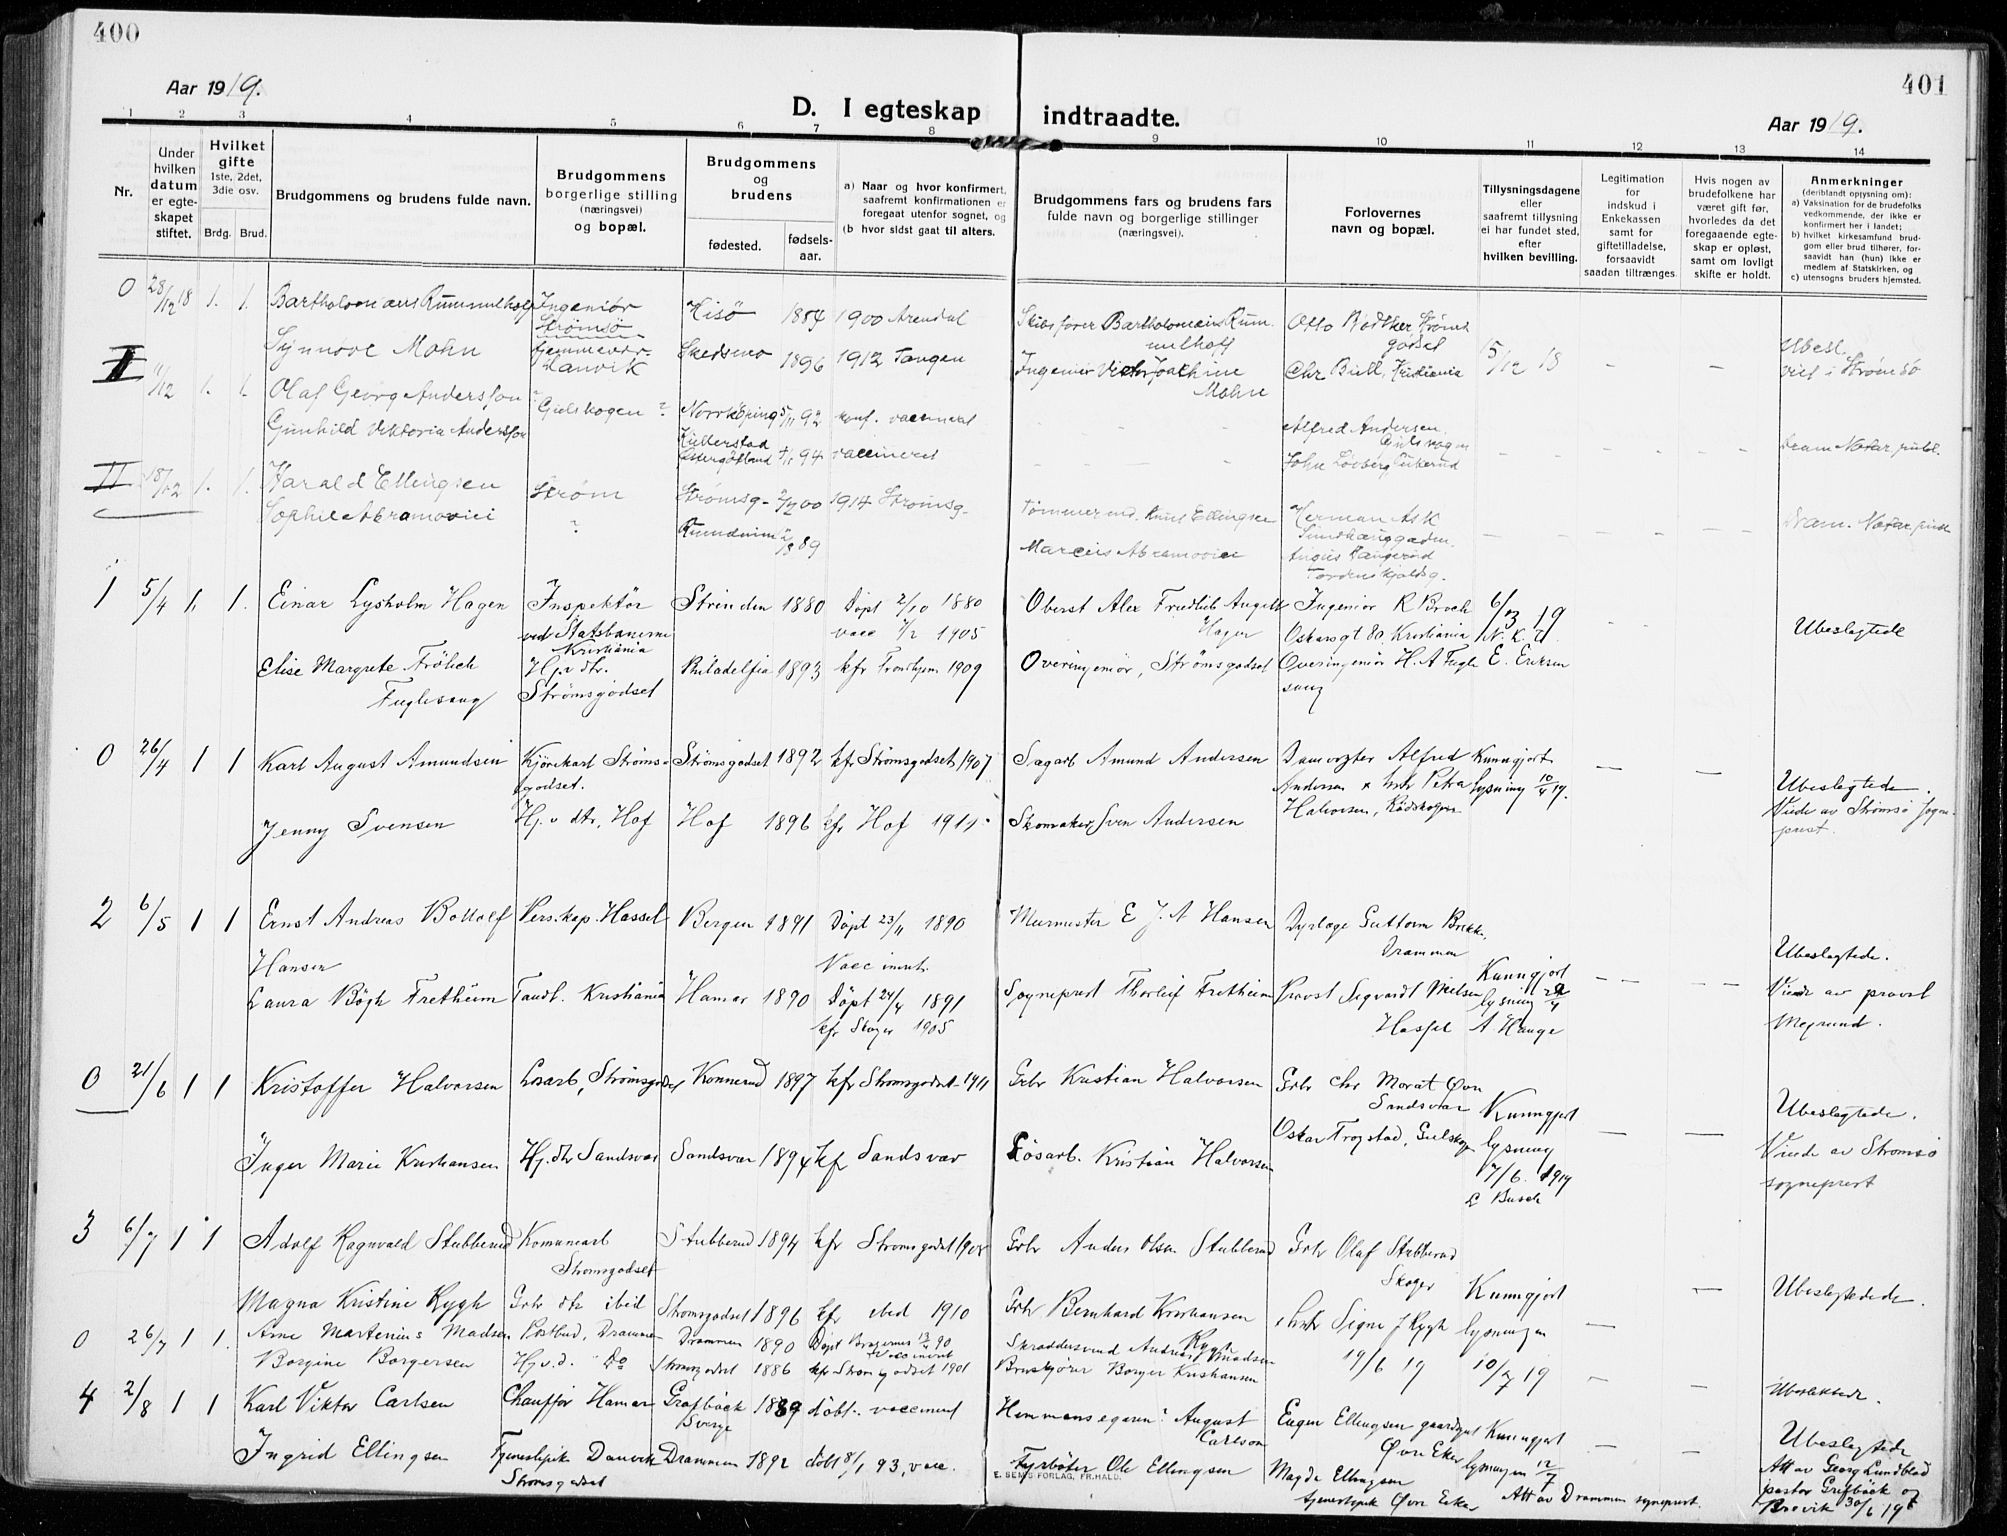 400
401
Aar 1919.
D. I egteskap indtraadte.
Aar 1919.
1 2 3 4 5 6 7 8 9 10 11 12 13 14
Nr.
Under hvilken datum er egteskapet stiftet.
Hvilket gifte 1ste, 2det, 3die osv.
Brdg. Brud.
Brudgommens og brudens fulde navn.
Brudgommens borgerlige stilling (næringsvei) og bopæl.
Brudgommens og brudens
fødested. fødselsaar.
a) Naar og hvor konfirmert, saafremt konfirmationen er foregaat utenfor sognet, og
(b hvor sidst gaat til alters.
Brudgommens fars og brudens fars fulde navn og borgerlige stillinger (næringsvei).
Forlovernes navn og bopæl.
Tillysningsdagene eller saafremt tillysning ei har fundet sted, efter hvilken bevilling.
Legitimation for indskud i Enkekassen samt for giftetilladelse, forsaavidt saadan tiltrænges.
Hvis nogen av brudefolkene har været gift før, hvorledes da det foregaaende egteskap er opløst, samt om lovligt skifte er holdt.
Anmerkninger (deriblandt opysning om):
a) Vaksination for de brudefolks vedkommende, der ikke er konfirmert her i landet;
b) hvilket kirkesamfund brudgom eller brud tilhører, forsaavidt han (hun) ikke er medlem af Statskirken, og
c) utensogns bruders hjemsted.
0 28/12 18 1. 1. Ingeniør Strømsø Hisø 1884 1900 Arendal
Synnøve Mohn Skedsmo 1896 1912 Tangen
Chr Bull, Kristiania 5/12 18
Ubesl. viet i Strømsø
1. 1. Olaf Georg Anderssen Gjulskogen ? Norrköping 5/11 92 konf. vaccineret
Gunhild Viktoria Anderssen Kullerstad Østergötland 94 vaccineret
Alfred Andersen
John Løvberg
Dram Notar. publ.
II 18/12 1. 1. Harald Ellingsen Strøm Strømsg- 00 1914 Strømsg-
Sophie Abramovici ? 89
Knut Ellingsen
Marcus Abramovici
Herman Ask
Tordenskjoldsg.
Dram. Notar. publ
1 5/4 1. 1. Einar Lysholm Hagen Inspektør ved Statsbanerne Kristiania Strinden 1880 Døpt 2/10 1880
vacc 1/2 1905
Elise Margrete Frölich Fuglesang Hj.v dtr. Strømsgodset Philadelfia 1893 kfr Trondhjem 1909
Oberst Alex Friedlieb Hagen
Overingeniør, Strømsgodset
Ingeniør R Broch
Oscarsgt 80, Kristiania
Overingeniør H. A Fuglesang
6/3 19
E. Eriksen
Ubeslegtede
0 26/4 1 1 Karl August Amundsen Kjørekarl Strømsgodset. Strømsgodset 1892 kfr Strømsgodset 1907
Jenny Svensen Hj. v dtr, Hof Hof 1896 kfr Hof 1911
Sagarb Amund Andersen
Skomaker Sven Andersen
Damvogter Alfred Andersen
Petra Halvorsen, Rødskogen
Kunngjort lysning 10/4 19.
Ubeslegtede.
Viede av Strømsø sogneprest.
2 6/5 1 1 Ernst Andreas Bottolf Hansen Pers. kap. Hassel Bergen 1891 Døpt 23/11 1890
Vacc innt.
Laura Bøgh Fretheim Tandl. Kristiania Hamar 1890 Døpt 24/4 1891
kfr Skoger 1905
Murmester E J. A Hansen
Sogneprest Thorleif Fretheim
Dyrlæge Guttorm Drammen
Provst Sigvardt Nielsen Hassel
Kunngjort lysning
A. Hauge
Ubeslegtede.
Viede av provst Megrund.
0 21/6 1 1 Kristoffer Halvorsen Løsarb, Strømsgodset Konnerud 1897 kfr Strømsgodset 1911
Inger Marie Kristiansen Hj. dtr Sandsvær Sandsvær 1894 kfr Sandsvær
Grbr Kristian Halvorsen
Løsarb. Kristian Halvorsen
Grbr Chr Morat Øvre Sandsvær
Oskar Trogstad, Gulskogen
Kunngjort lysning 7/6 1919
L Busch
Ubeslegtede.
Viede av Strømsø sogneprest
3 6/7 1 1 Adolf Ragnvald Stubberud Komunearb Strømsgodset Stubberud 1894 kfr Strømsgodset 1908
Magna Kristine Rygh Grbr dtr ibid Strømsgodset 1896 kfr ibid 1910
Grbr Anders Olsen Stubberud
Grbr Bernhard Kristiansen Rygh
Grbr Olaf Stubberud Skoger
Signe J Rygh
Kunngjort lysningen
Ubeslegtedede.
0 26/7 1 1. Arne Martenius Madsen Postbud, Drammen Drammen 1890 Døpt Bragernes
Borgine Borgersen Hj.v.d. Do Strømsgodset 1886 kfr Strømsgodset 1901
Skræddersvend
Borger Kristiansen
19/6 19
10/7 19
Ubeslektede.
4 2/8 1 1 Karl Viktor Carlsen Chauffør Hamar Grafbäck Sverge 1889 døbt. vaccinert
Ingrid Ellingsen Tjenestepik Danvik Strømsgodset Drammen 1892 døbt 8/1 93, vacc.
Hemmansegaren August Carlson
Fyrbøter Ole Ellingsen
E. SEMS FORLAG, FR.HALD.
Eugen Ellingsen gaardgut Øvre Eker
Magda Ellingsen tjenestepik Øvre Eker
Kunngjort lysningen 12/7
Att av Drammen sogneprest.
Ubeslegtede
Att av Georg Lundblad pastor Grafbäck og Brevik 30/6 19